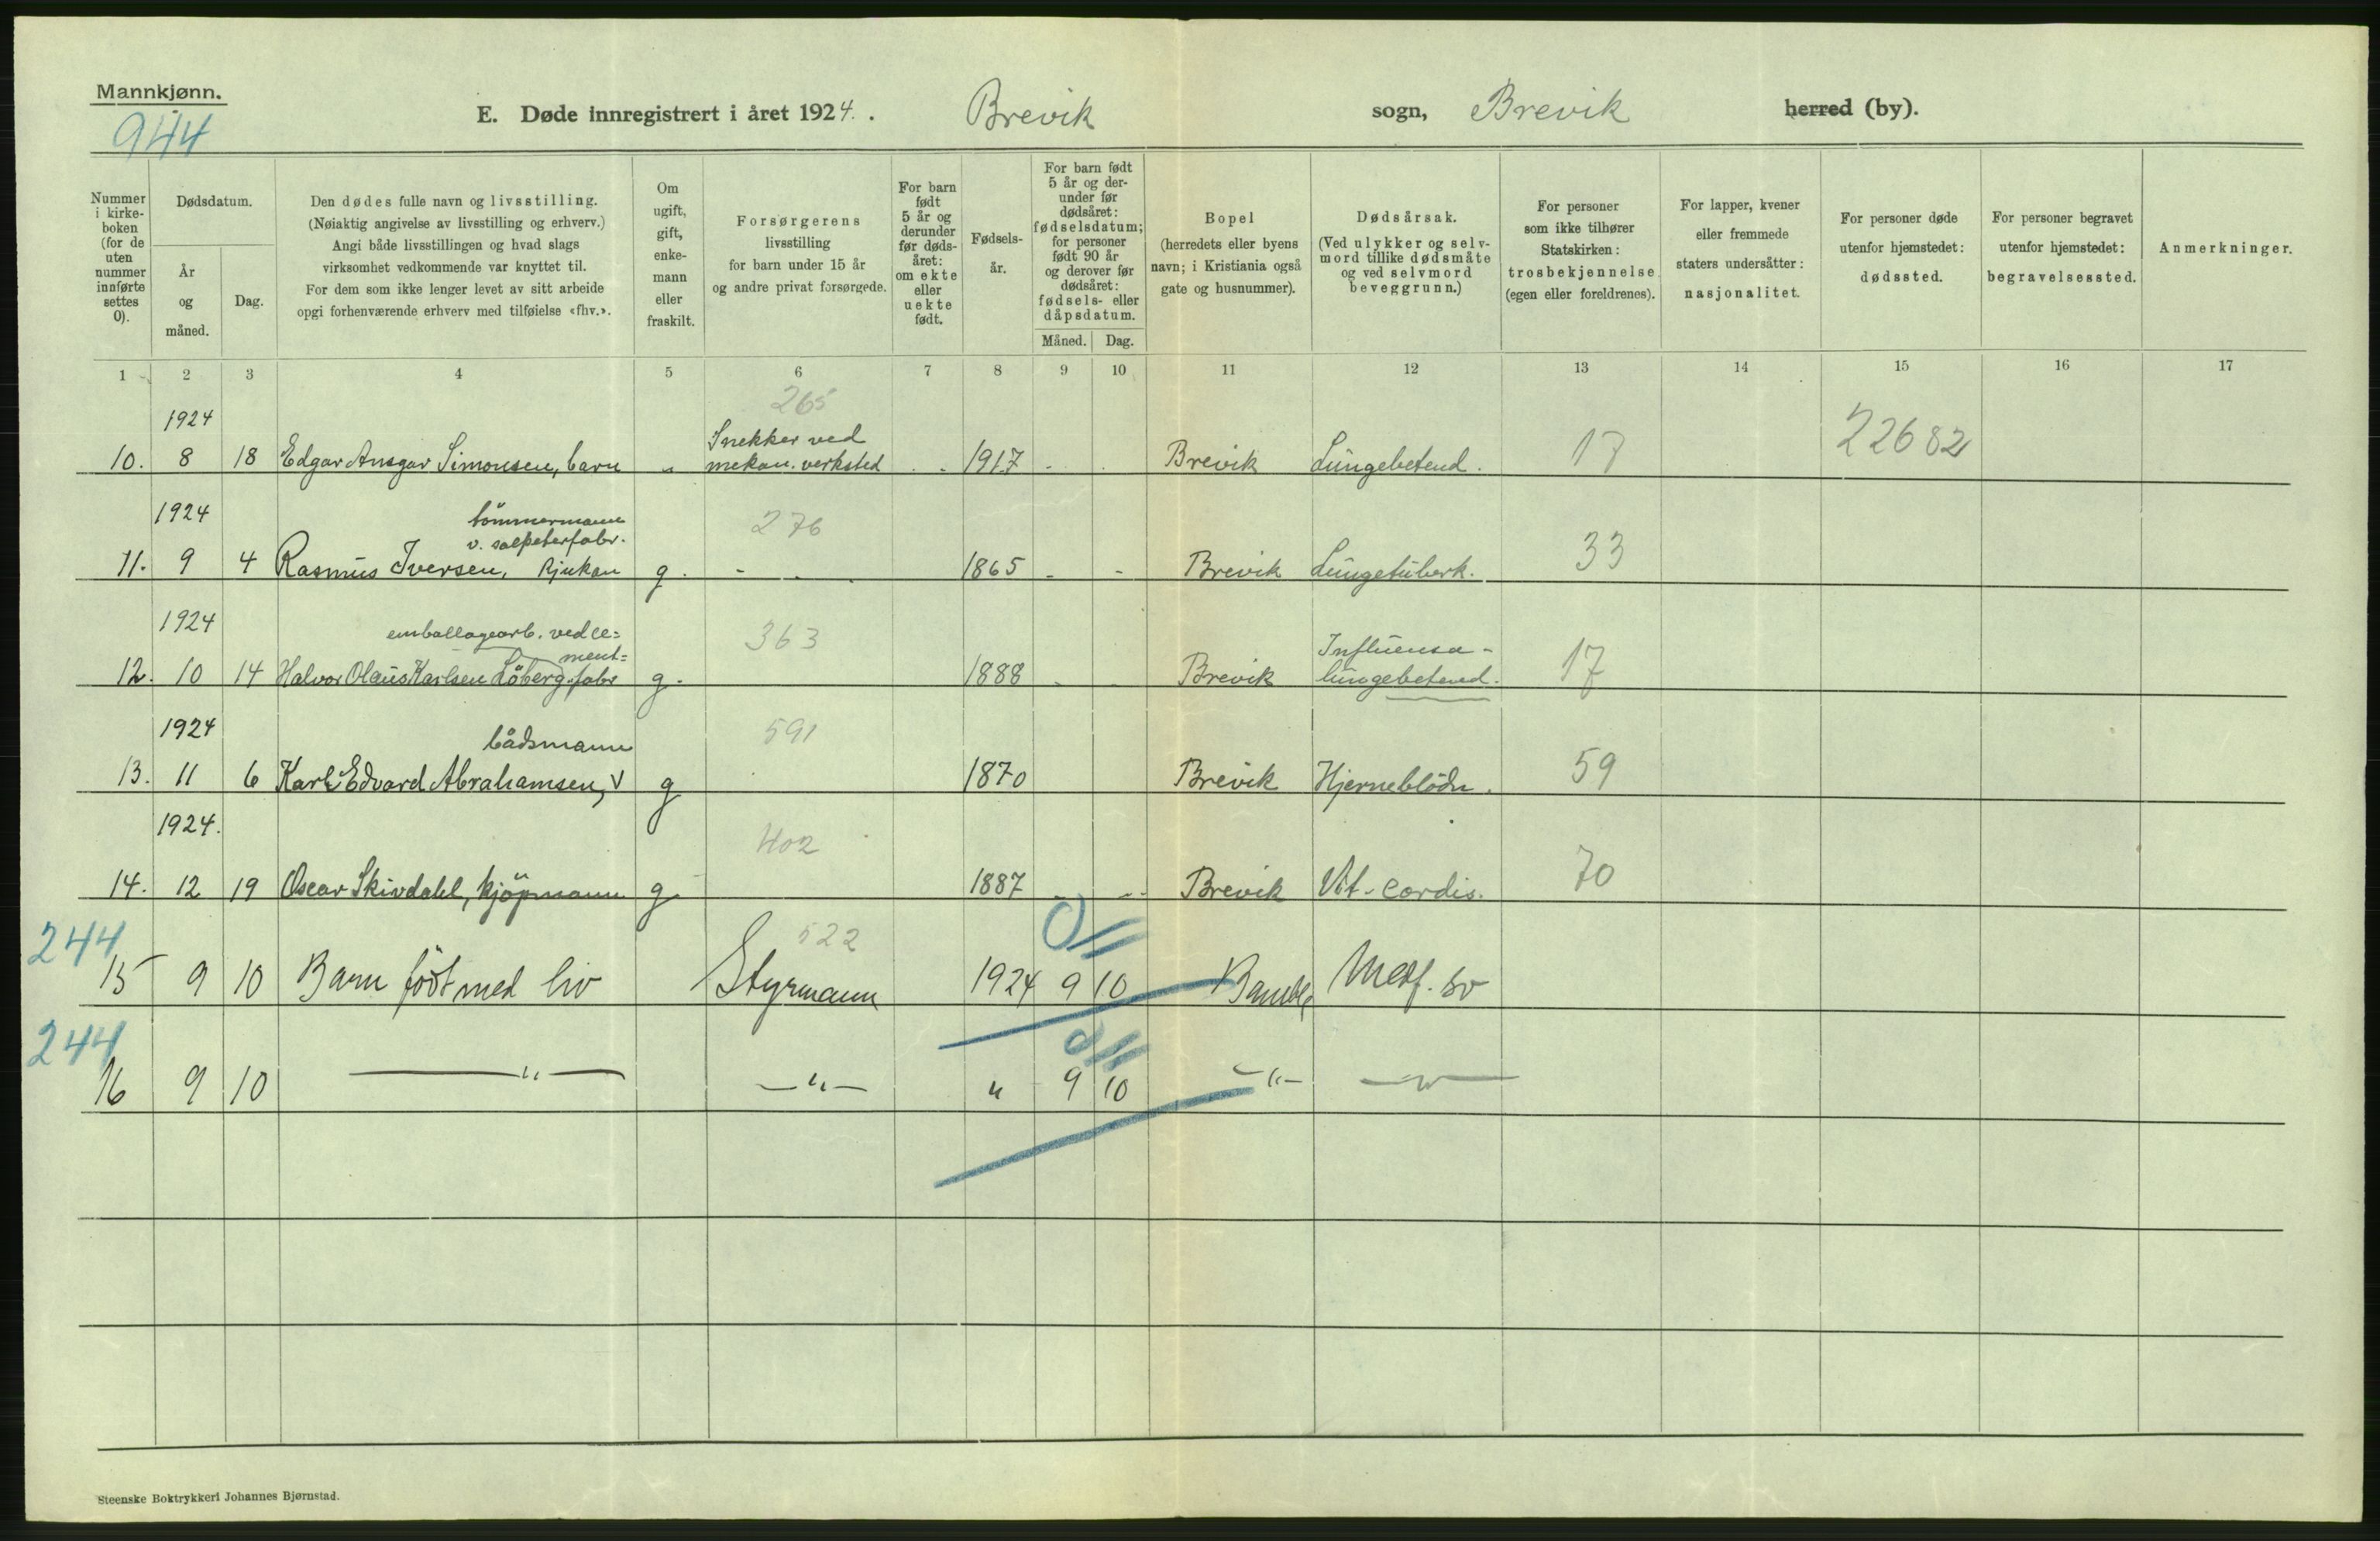 Mannkjønn.
944
E. Døde innregistrert i året 1924. Brevik sogn, Brevik herred (by).
Nummer i kirke-
boken
(for de
uten
nummer
innførte
settes
0).
Dødsdatum.
År
og
måned.
Dag.
Den dødes fulle navn og livsstilling.
(Nøiaktig angivelse av livsstilling og erhverv.)
Angi både livsstillingen og hvad slags
virksomhet vedkommende var knyttet til.
For dem som ikke lenger levet av sitt arbeide
opgi forhenværende erhverv med tilføielse «fhv.».
Om
ugift,
gift,
enke-
mann
eller
fraskilt.
Forsørgerens
livsstilling
for barn under 15 år
og andre privat forsørgede.
For barn
født
5 år og
derunder
før døds-
året:
om ekte
eller
uekte
født.
Fødsels-
år.
For barn født
5 år og der-
under før
dødsåret:
fødselsdatum;
for personer
født 90 år
og derover før
dødsåret:
fødsels- eller
dåpsdatum.
Måned. Dag.
Bopel
(herredets eller byens
navn; i Kristiania også
gate og husnummer).
Dødsårsak.
(Ved ulykker og selv-
mord tillike dødsmåte
og ved selvmord
beveggrunn.)
For personer
som ikke tilhører
Statskirken:
trosbekjennelse
(egen eller foreldrenes).
For lapper, kvener
eller fremmede
staters undersåtter:
nasjonalitet.
For personer døde
utenfor hjemstedet:
dødssted.
For personer begravet
utenfor hjemstedet:
begravelsessted.
Anmerkninger.
1 2 3 4 5 6 7 8 9 10 11 12 13 14 15 16 17
265
1924 Snekker ved
10. 8 18 Edgar Ansgar Simonsen, barn " mekan. verksted 1917 - Brevik Lungebetend. 17 22682
1924 tömmermann 276
v. salpeterfabr.
11. 9 4 Rasmus Iversen, Rjukan g. - 1865 - - Brevik Lungetuberk. 33
1924 emballagearb. ved ce= 363 Influensa-
ment=
12. 10 14 Halvor Olaus Karlsen Löberg, fabr g. 1888 Brevik lungebetend. 17
1924 båдsmann 591
13. 11 6 Karl Edvard Abrahamsen, v g 1870 Brevik Hjerneblödn. 59
1924. 402
14. 12 19 Oscar Skivdahl, kjöpmann g 1887 Brevik Vit-cordis. 70
244 522
15 9 10 Barn födt med liv Styrmann 1924 9 10 Bamble Medf. sv
244
16 9 10 —"— —"— " 9 10 —"— —"—
Steenske Boktrykkeri Johannes Bjørnstad.